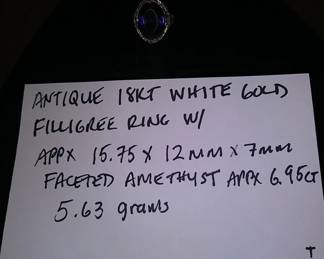 ANTIQUE 18KT WHITE GOLD
FILLIGREE RING W/
APPX 15.75 X 12MM X 7MM
FACETED AMETHYST APPX 6.95CT
5.63 grams
T